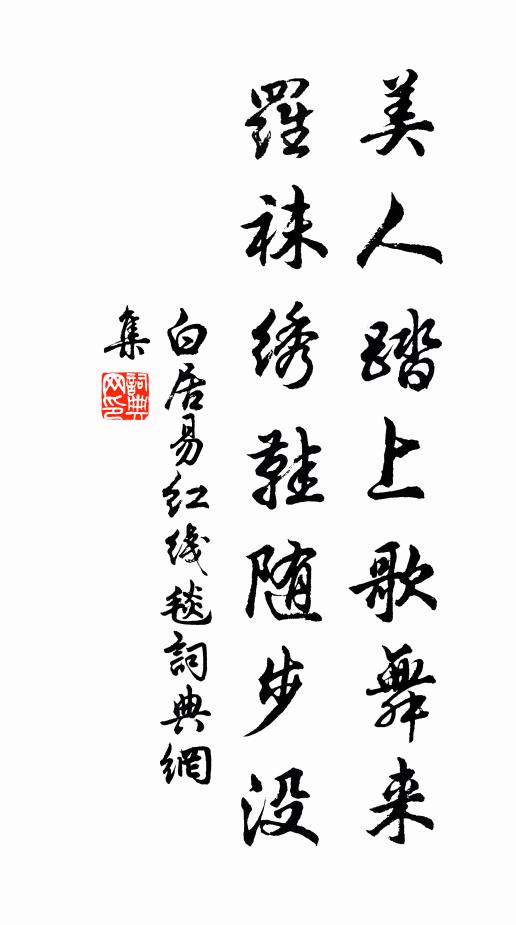 美人踏上歌舞来
羅袜绣鞋随步没
白居易红线毯詞典網
集
詞典
网印